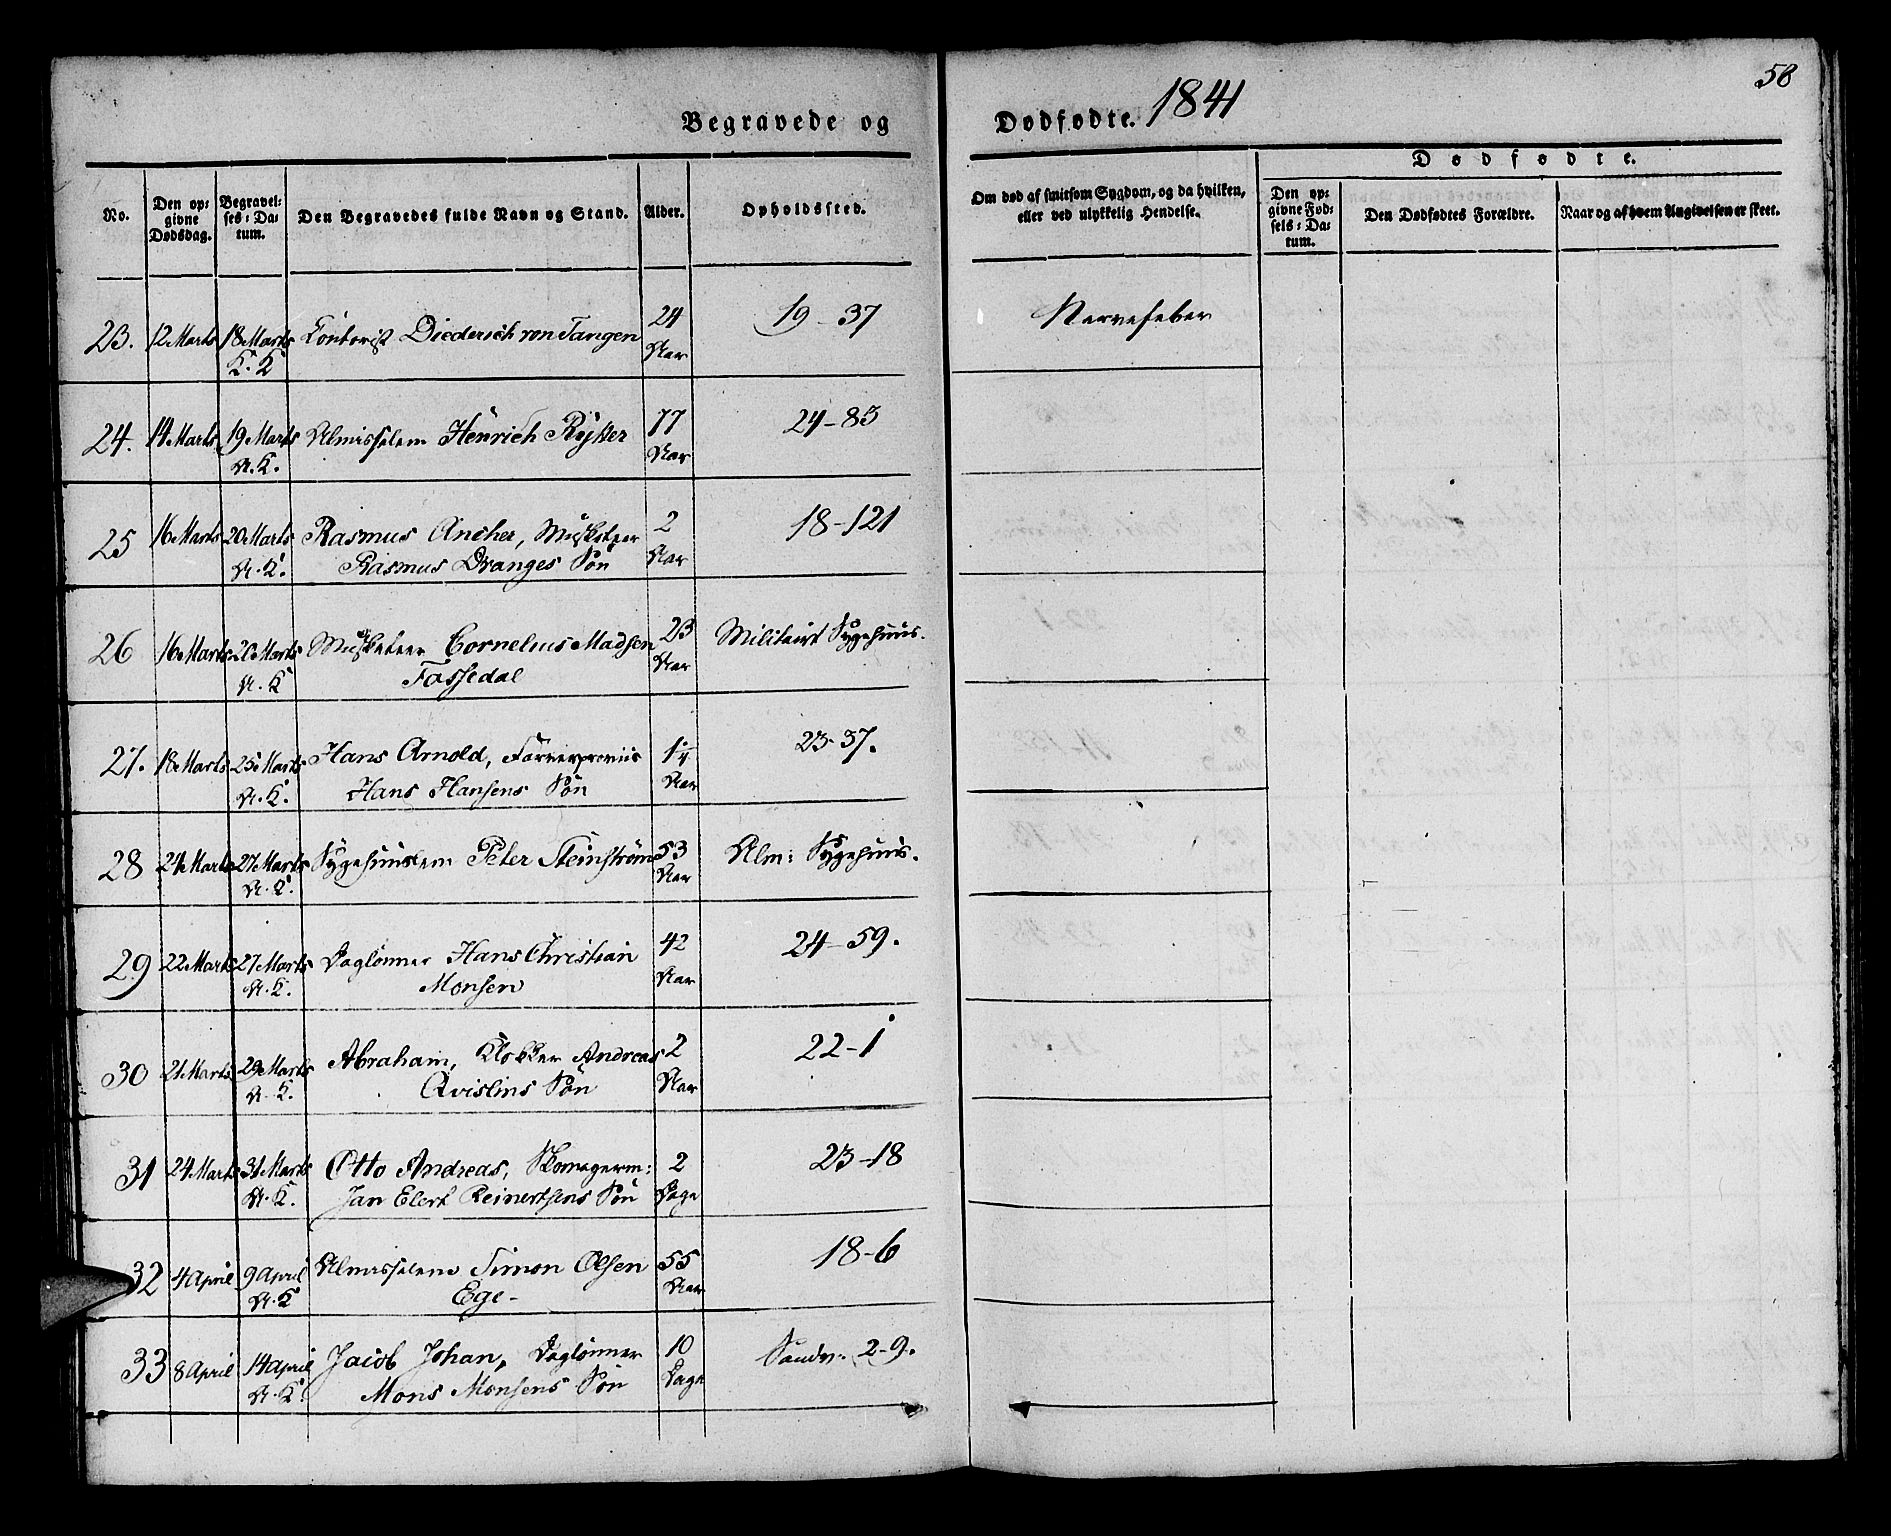 58
Begravede og Dødfødte. 1841
Dødfødte.
No.
Den opgivne Dødsdag.
Begravelses-Datum.
Den Begravedes fulde Navn og Stand.
Alder.
Opholdssted.
Om død af smitsom Sygdom, og da hvilken, eller ved ulykkelig Hendelse.
Den opgivne Fødsels-Datum.
Den Dødfødtes Forældre.
Naar og af hvem Angivelsen er skeet.
23. 12 Marts 18 Marts Contorist Diederich von Tangen 24 19-37 Nervefeber
K. K. Aar
24. 14 Marts 19 Marts Almisselem Henrich Rykker 77 24-83
A. K. Aar
25 16 Marts 20 Marts Rasmus Ancher, Musketeer 2 18-121
A. K. Rasmus Dranges Søn Aar
26 16 Marts 20 Marts Musketeer Cornelius Madsen 23 Militairt Sygehuus.
A. K Fossedal Aar
27. 18 Marts 25 Marts Hans Arnold, 1 1/4 23-37.
A. K. Hans Hansens Søn Aar
28 24 Marts 27 Marts Sygehuuslem Peter Steinstrøm 53 Alm: Sygehuus.
A. K. Aar
29 22 Marts 27 Marts Daglønner Hans Christian 42 24-59.
A. K. Monsen Aar
30 21 Marts 29 Marts Abraham, Klokker Andreas 2 22-1
A. K. Qvislins Søn Aar
31 24 Marts 31 Marts Otto Andreas, Skomagerm: 2 23-18
A. K. Jan Elert Reinertsens Søn Dage
32 4 April 9 April Almisselem Simon Olsen 55 18-6
A. K Ege- Aar
33 8 April 14 April Jacob Johan, Daglønner 10 Sandv. 2-9.
A. K. Mons Monsens Søn Dage